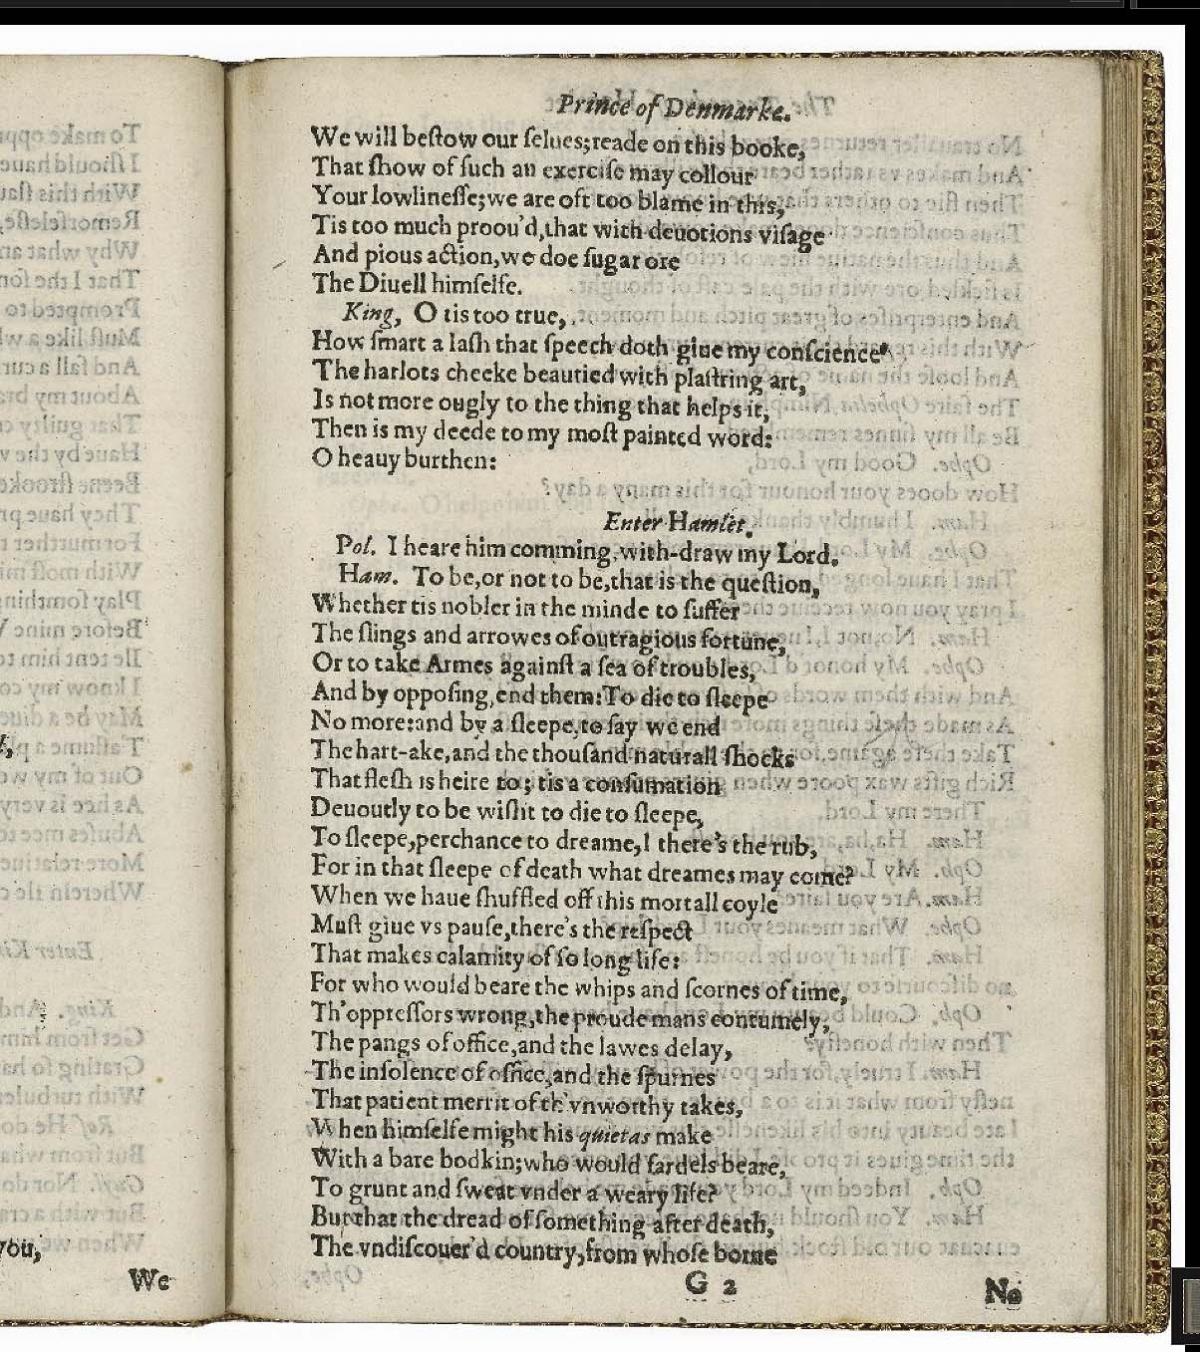 Prince of Denmarke.
We will beſtow our ſelues; reade on this booke,
That ſhow of ſuch an exerciſe may collour
Your lowlineſſe; we are oft too blame in this,
Tis too much proou'd, that with deuotions viſage
And pious action, we doe ſugar ore
The Diuell himſelfe.
King, O tis too true,
How ſmart a laſh that ſpeech doth giue my conſcience
The harlots cheeke beautied with plaſtring art,
Is not more ougly to the thing that helps it,
Then is my deede to my moſt painted word:
O heauy burthen:
Enter Hamlet.
Pol. I heare him comming, with-draw my Lord.
Ham. To be, or not to be, that is the queſtion,
Whether tis nobler in the minde to ſuffer
The ſlings and arrowes of outragious fortune,
Or to take Armes againſt a ſea of troubles,
And by oppoſing, end them: To die to ſleepe
No more: and by a ſleepe, to ſay we end
The hart-ake, and the thouſand naturall ſhocks
That fleſh is heire to; tis a conſumation
Deuoutly to be wiſht to die to ſleepe,
To ſleepe, perchance to dreame, I there's the rub,
For in that ſleepe of death what dreames may come?
When we haue ſhuffled off this mortall coyle
Muſt giue vs pauſe, there's the reſpect
That makes calamity of ſo long life:
For who would beare the whips and ſcornes of time,
Th'oppreſſors wrong, the proude mans contumely,
The pangs of office, and the lawes delay,
The inſolence of office, and the ſpurnes
That patient merrit of th'vnworthy takes,
When himſelfe might his quietas make
With a bare bodkin; who would fardels beare,
To grunt and ſweat vnder a weary life?
But that the dread of ſomething after death,
The vndiſcouer'd country, from whoſe borne
you,
We
G 2
No